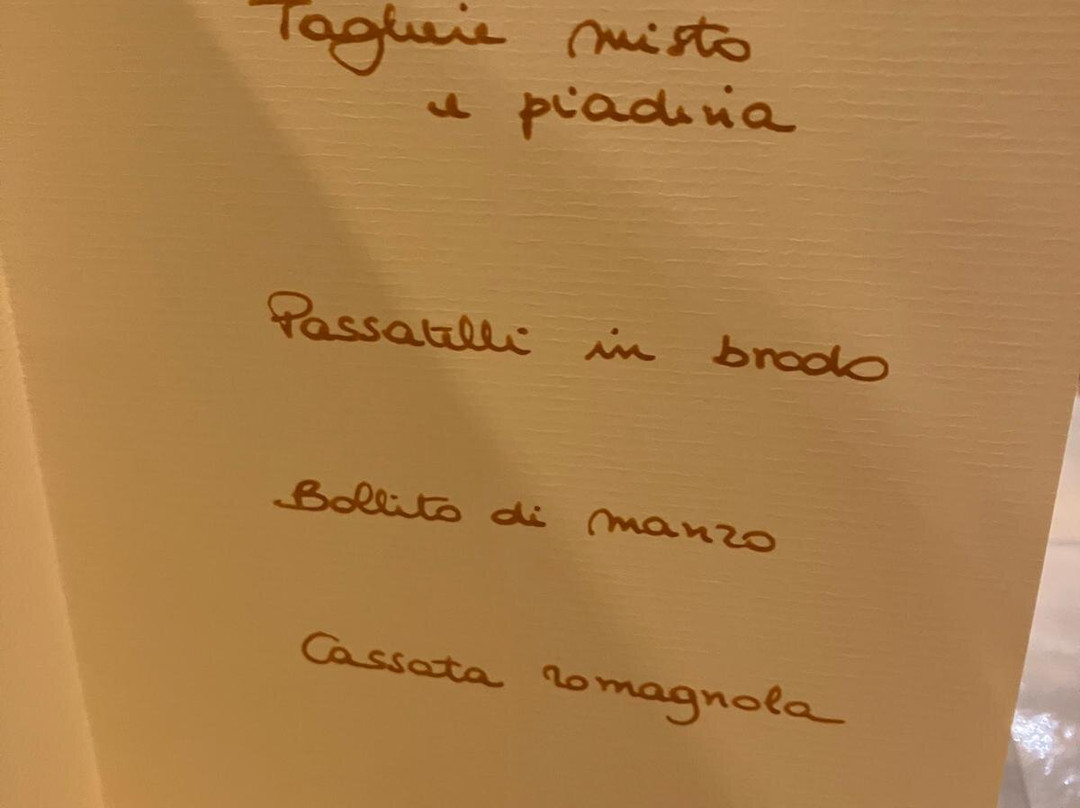 Tagliere misto
e piadina
Passatelli in brodo
Bollito di manzo
Cassata romagnola